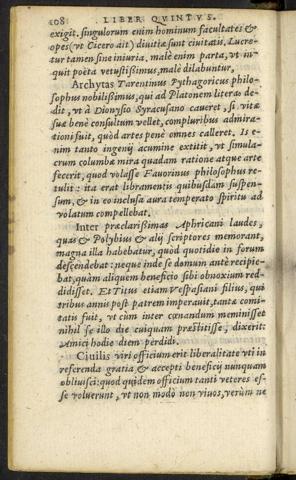 108 LIBER QVINTVS.
exigit. singulorum enim hominum facultates &
opes (vt Cicero ait) diuitiæ sunt ciuitatis. Lucro-
tur tamen sine iniuria. malè enim parta, vt in-
quit poëta vetustissimus, malè dilabuntur,
Archytas Tarentinus Pythagoricus philo-
sophus nobilissimus, qui ad Platonem literas de-
dit, vt à Dionysio Syracusano caueret, si vitæ
suæ benè consultum vellet, compluribus admira-
tioni fuit, quòd artes penè omnes calleret. Is e-
nim tanto ingenij acumine extitit, vt simula-
crum columbæ mira quadam ratione atque arte
fecerit, quod volasse Fauorinus philosophus re-
tulit: ita erat libramentis quibusdam suspen-
sum, & in eo inclusa aura temperato spiritu ad
volatum compellebat.
Inter præclarissimas Aphricani laudes,
quas & Polybius & alij scriptores memorant,
magna illa habebatur, quòd quotidie in forum
descendebat: neque inde se domum antè recipie-
bat, quàm aliquem beneficio sibi obnoxium red-
didisset. Et Titus etiam Vespasiani filius, qui
tribus annis pòst patrem imperauit, tantæ comi-
tatis fuit, vt cùm inter cœnandum meminisset
nihil se illo die cuiquam præstitisse, dixerit:
Amici hodie diem perdidi.
Ciuilis viri officium erit liberalitate vti in
referenda gratia & accepti beneficij nunquam
obliuisci: quod quidem officium tanti veteres es-
se voluerunt, vt non modò non viuos, verùm ne